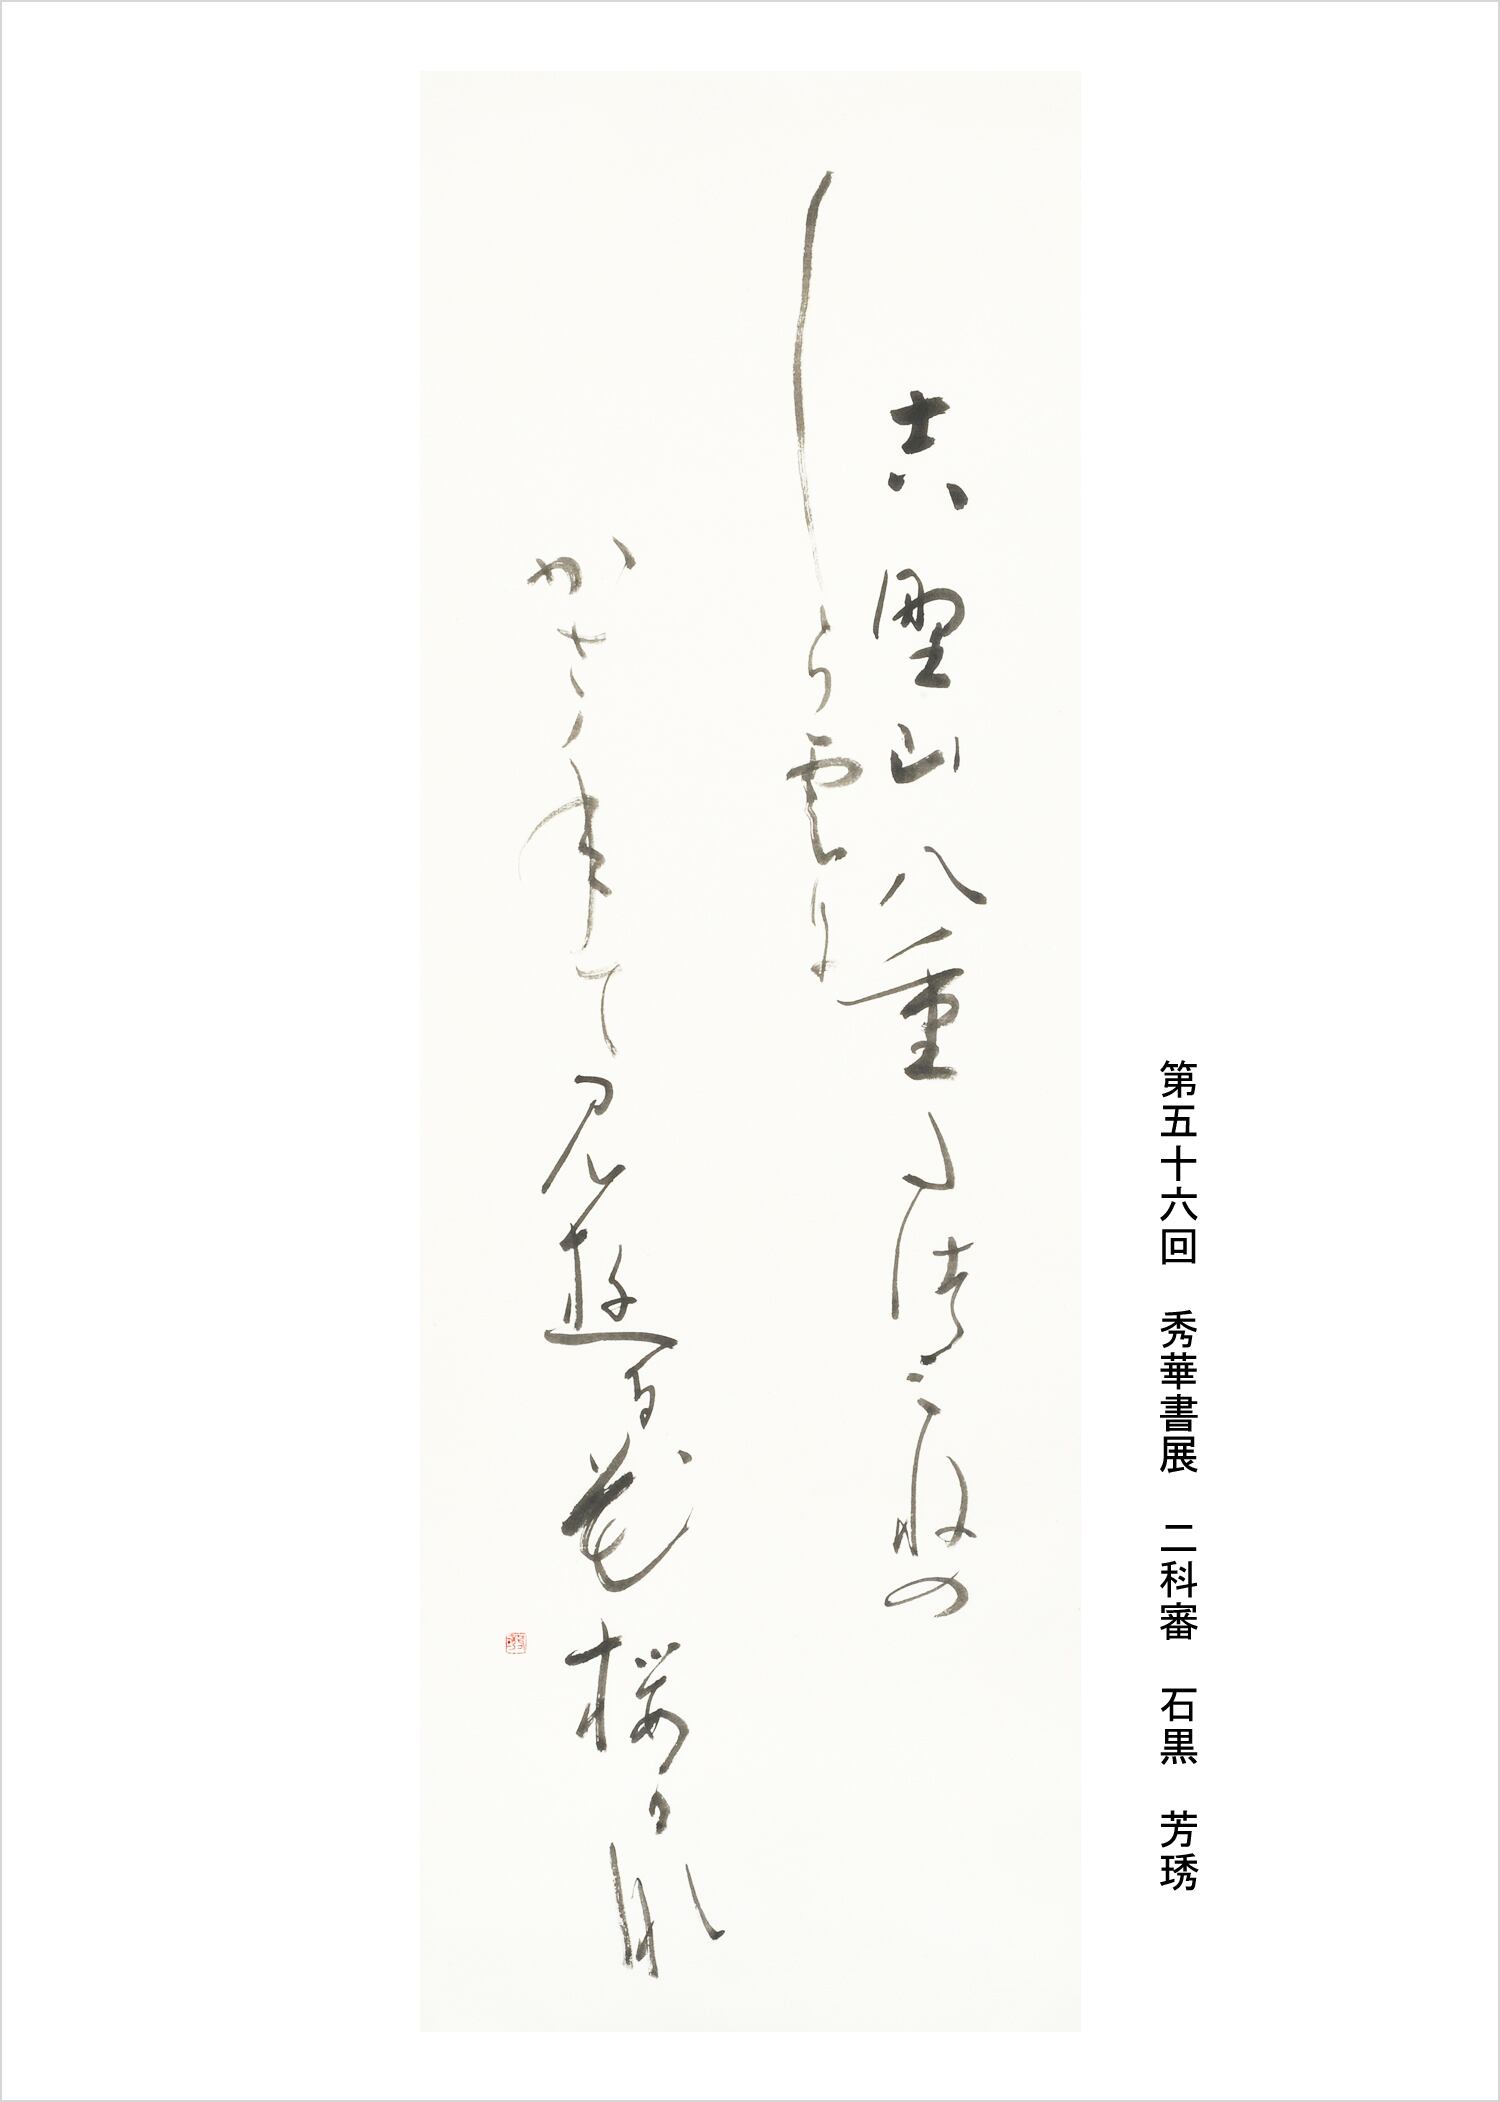 第五十六回 秀華書展 二科審 石黒 芳琇
吉野山八重た徒三祢の
しら雲に
かさ年て見遊る花桜可那